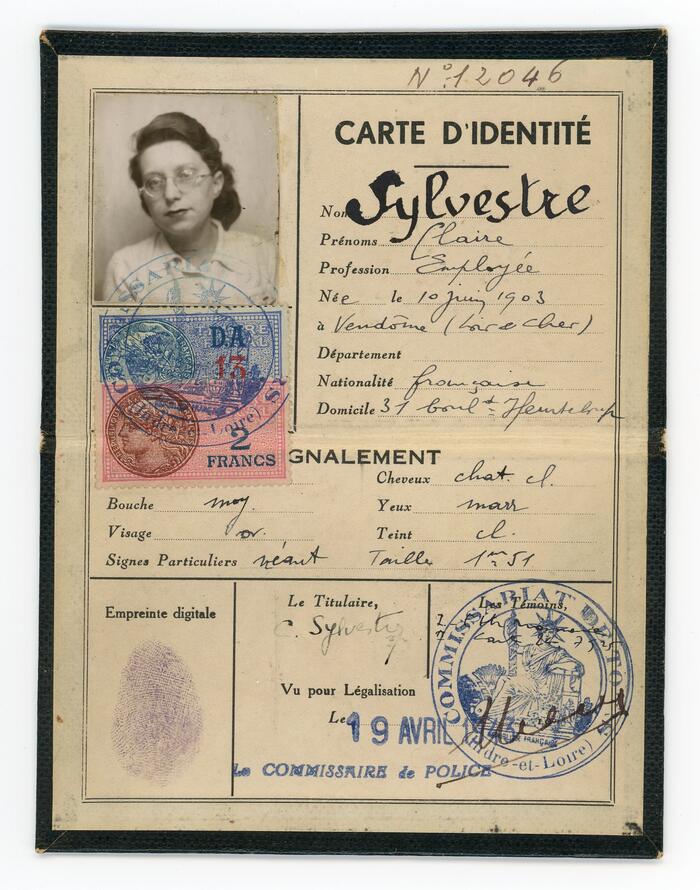 N° 12046
CARTE D'IDENTITÉ
Nom Sylvestre
Prénoms Claire
Profession Employée
Née le 10 juin 1903
à Vendôme (Loir & Cher)
Département
Nationalité française
Domicile 31 boul^d Heurteloup
D.A
13
2
FRANCS
GNALEMENT
Cheveux chat. cl.
Bouche moy.
Yeux marr
Visage ov.
Teint cl.
Signes Particuliers néant Taille 1m 51
Empreinte digitale
Le Titulaire,
C. Sylvestre
Les Témoins,
Vu pour Légalisation
Le 19 AVRIL
Le COMMISSAIRE de POLICE
COMMISSARIAT DE TOURS
(Indre-et-Loire)